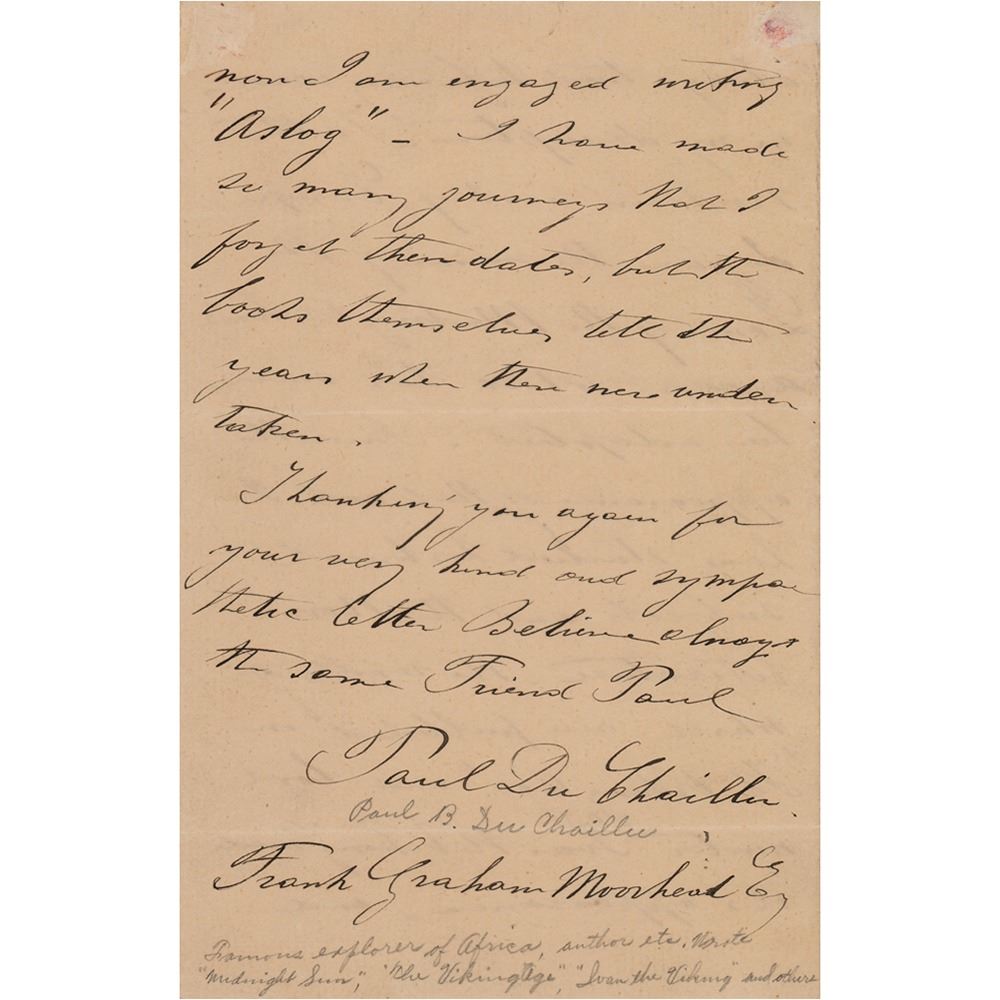 now I am engaged writing
"Aslog" - I have made
so many journeys that I
forget their dates, but the
books themselves tell the
years when these were under
taken.
Thanking you again for
your very kind and sympa
thetic letter Believe always
the same Friend Paul
Paul Du Chaillu
Paul B. Du Chaillu
Frank Graham Moorhead Esq
Famous explorer of Africa, author etc. Wrote
"Midnight Sun", "The Viking Age", "Ivan the Viking" and others